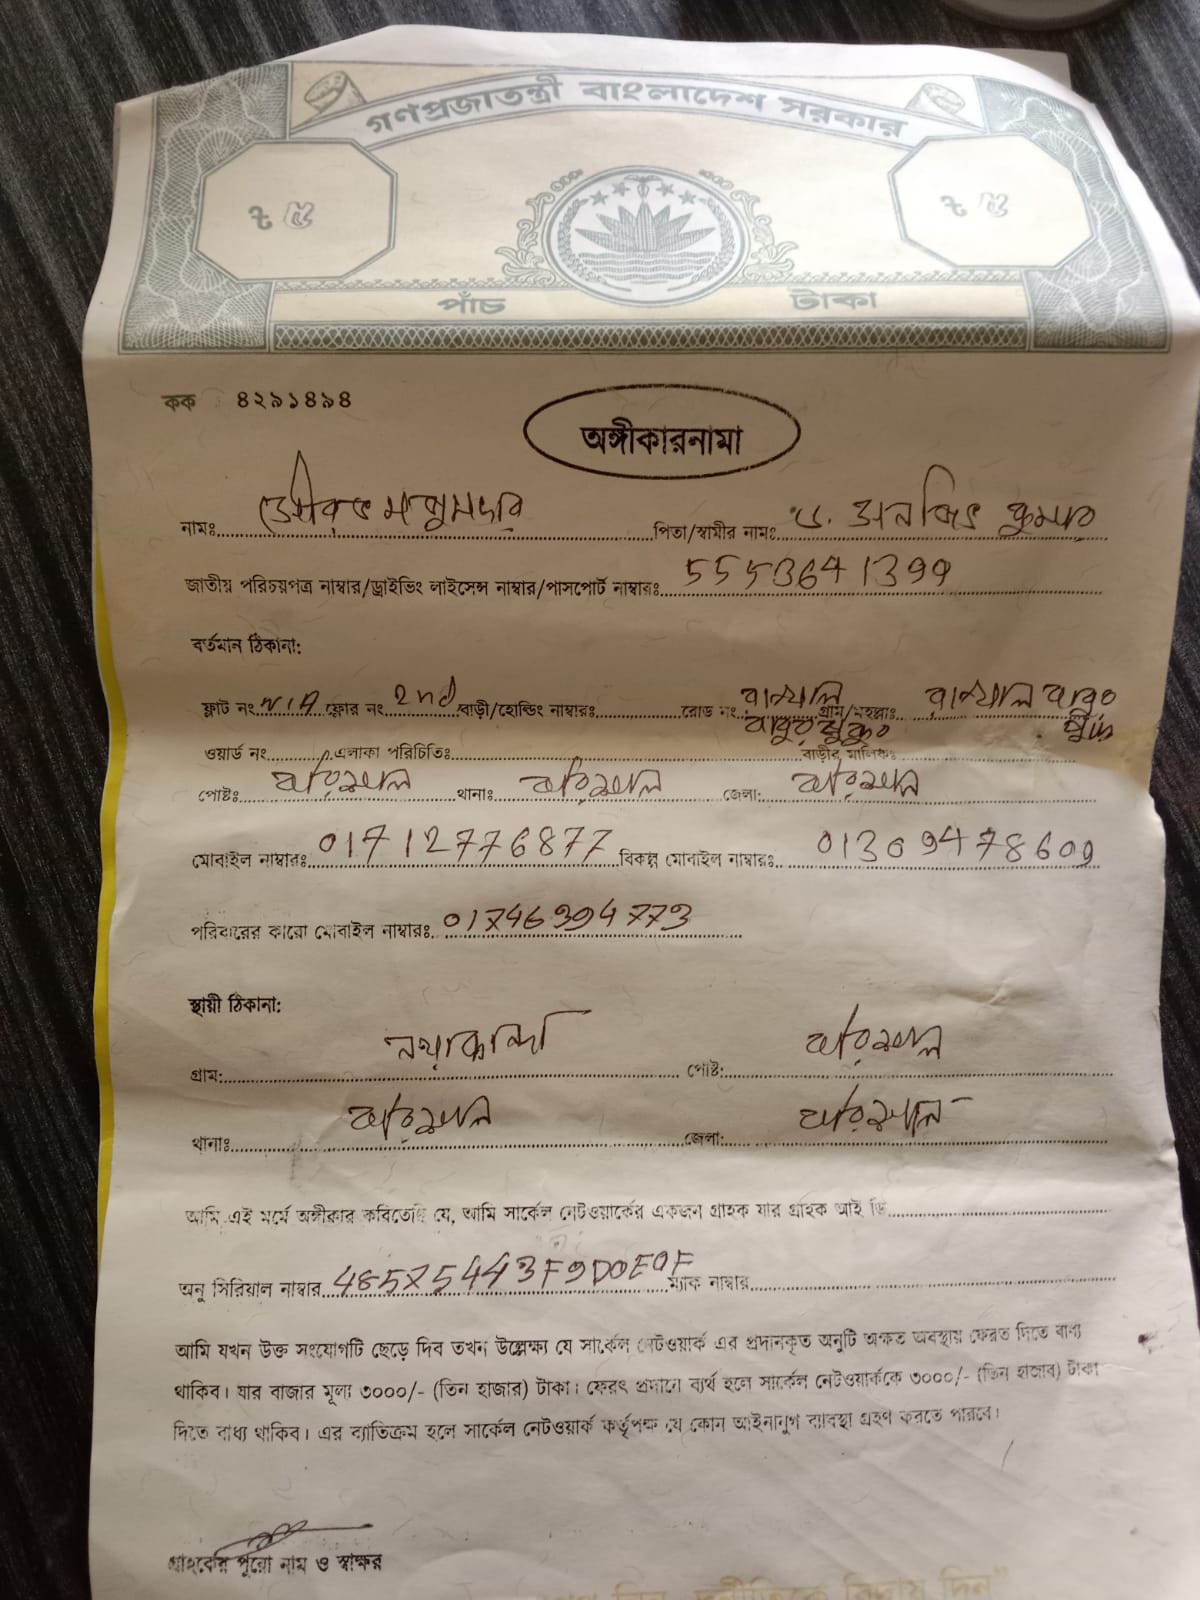 গণপ্রজাতন্ত্রী বাংলাদেশ সরকার
৳ ৫ ৳ ৫
পাঁচ টাকা
কক ৪২৯১৪৯৪
অঙ্গীকারনামা
নামঃ সৌরভ মজুমদার পিতা/স্বামীর নামঃ কুমার
জাতীয় পরিচয়পত্র নাম্বার/ড্রাইভিং লাইসেন্স নাম্বার/পাসপোর্ট নাম্বারঃ 5553641399
বর্তমান ঠিকানা:
ফ্লাট নং N/A ফ্লোর নং 2nd বাড়ী/হোল্ডিং নাম্বারঃ রোড নং গ্রাম/মহল্লাঃ
ওয়ার্ড নং এলাকা পরিচিতিঃ বাড়ীর মালিকঃ
পোষ্টঃ বরিশাল থানাঃ বরিশাল জেলা: বরিশাল
মোবাইল নাম্বারঃ 01712776877 বিকল্প মোবাইল নাম্বারঃ 01309478609
পরিবারের কারো মোবাইল নাম্বারঃ 01746394773
স্থায়ী ঠিকানা:
গ্রাম: পোষ্ট: বরিশাল
থানাঃ বরিশাল জেলা: বরিশাল
আমি এই মর্মে অঙ্গীকার করিতেছি যে, আমি সার্কেল নেটওয়ার্কের একজন গ্রাহক যার গ্রাহক আই ডি
অনু সিরিয়াল নাম্বার 48575443F9D0E0F ম্যাক নাম্বার
আমি যখন উক্ত সংযোগটি ছেড়ে দিব তখন উল্লেক্ষ্য যে সার্কেল নেটওয়ার্ক এর প্রদানকৃত অনুটি অক্ষত অবস্থায় ফেরত দিতে বাধ্য
থাকিব। যার বাজার মূল্য ৩০০০/- (তিন হাজার) টাকা। ফেরৎ প্রদানে ব্যর্থ হলে সার্কেল নেটওয়ার্ককে ৩০০০/- (তিন হাজার) টাকা
দিতে বাধ্য থাকিব। এর ব্যাতিক্রম হলে সার্কেল নেটওয়ার্ক কর্তৃপক্ষ যে কোন আইনানুগ ব্যাবস্থা গ্রহণ করতে পারবে।
গ্রাহকের পুরো নাম ও স্বাক্ষর